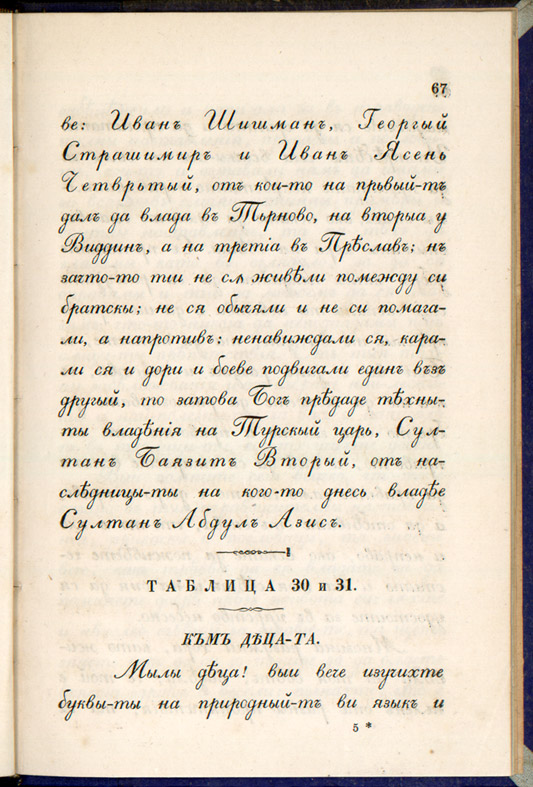 67
ве: Иванъ Шишманъ, Георгый
Страшимиръ и Иванъ Ясень
Четврьтый, отъ кои-то на прьвый-тъ
далъ да влада въ Търново, на вторыа у
Виддинъ, а на третіа въ Прѣславъ; нъ
зачто-то тіи не сѫ живѣли помежду си
братскы; не ся обычяли и не си помага-
ли, а напротивъ: ненавиждали ся, кара-
ли ся и дори и боеве подвигали единъ възъ
другый, то затова Богъ прѣдаде тѣхны-
ты владѣнія на Турскый царь, Сул-
танъ Баязитъ Вторый, отъ на-
слѣдницы-ты на кого-то днесь владѣе
Султанъ Абдулъ Азисъ.
ТАБЛИЦА 30 и 31.
КЪМЪ ДѢЦА-ТА.
Милы дѣца! выи вече изучихте
буквы-ты на природный-тъ ви языкъ и
5 *